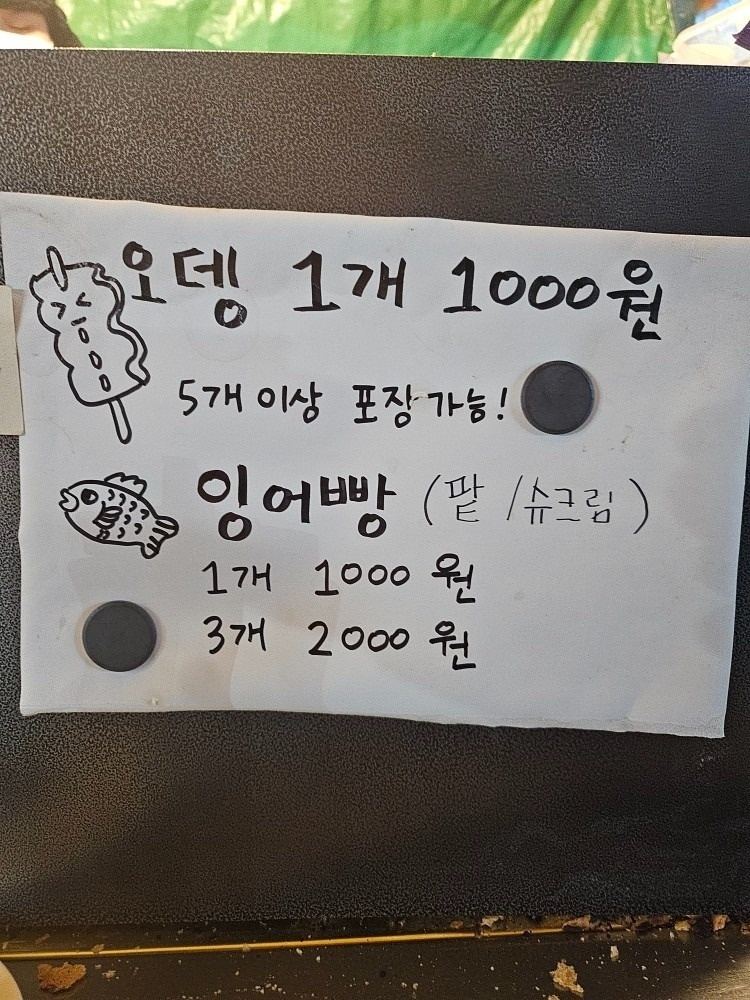 오뎅 1개 1000원
5개 이상 포장 가능!
잉어빵 (팥 /슈크림)
1개 1000 원
3개 2000 원